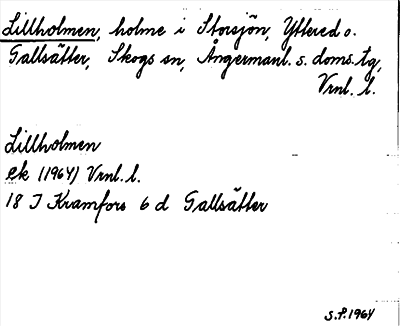 Lillholmen, holme i Storsjön, Yttered o.
Gallsätter, Skogs sn, Ångermanl. s. doms. tg,
Vrnl. l.
Lillholmen
ek (1964) Vrnl. l.
18 I Kramfors 6 d Gallsätter
S.P. 1964